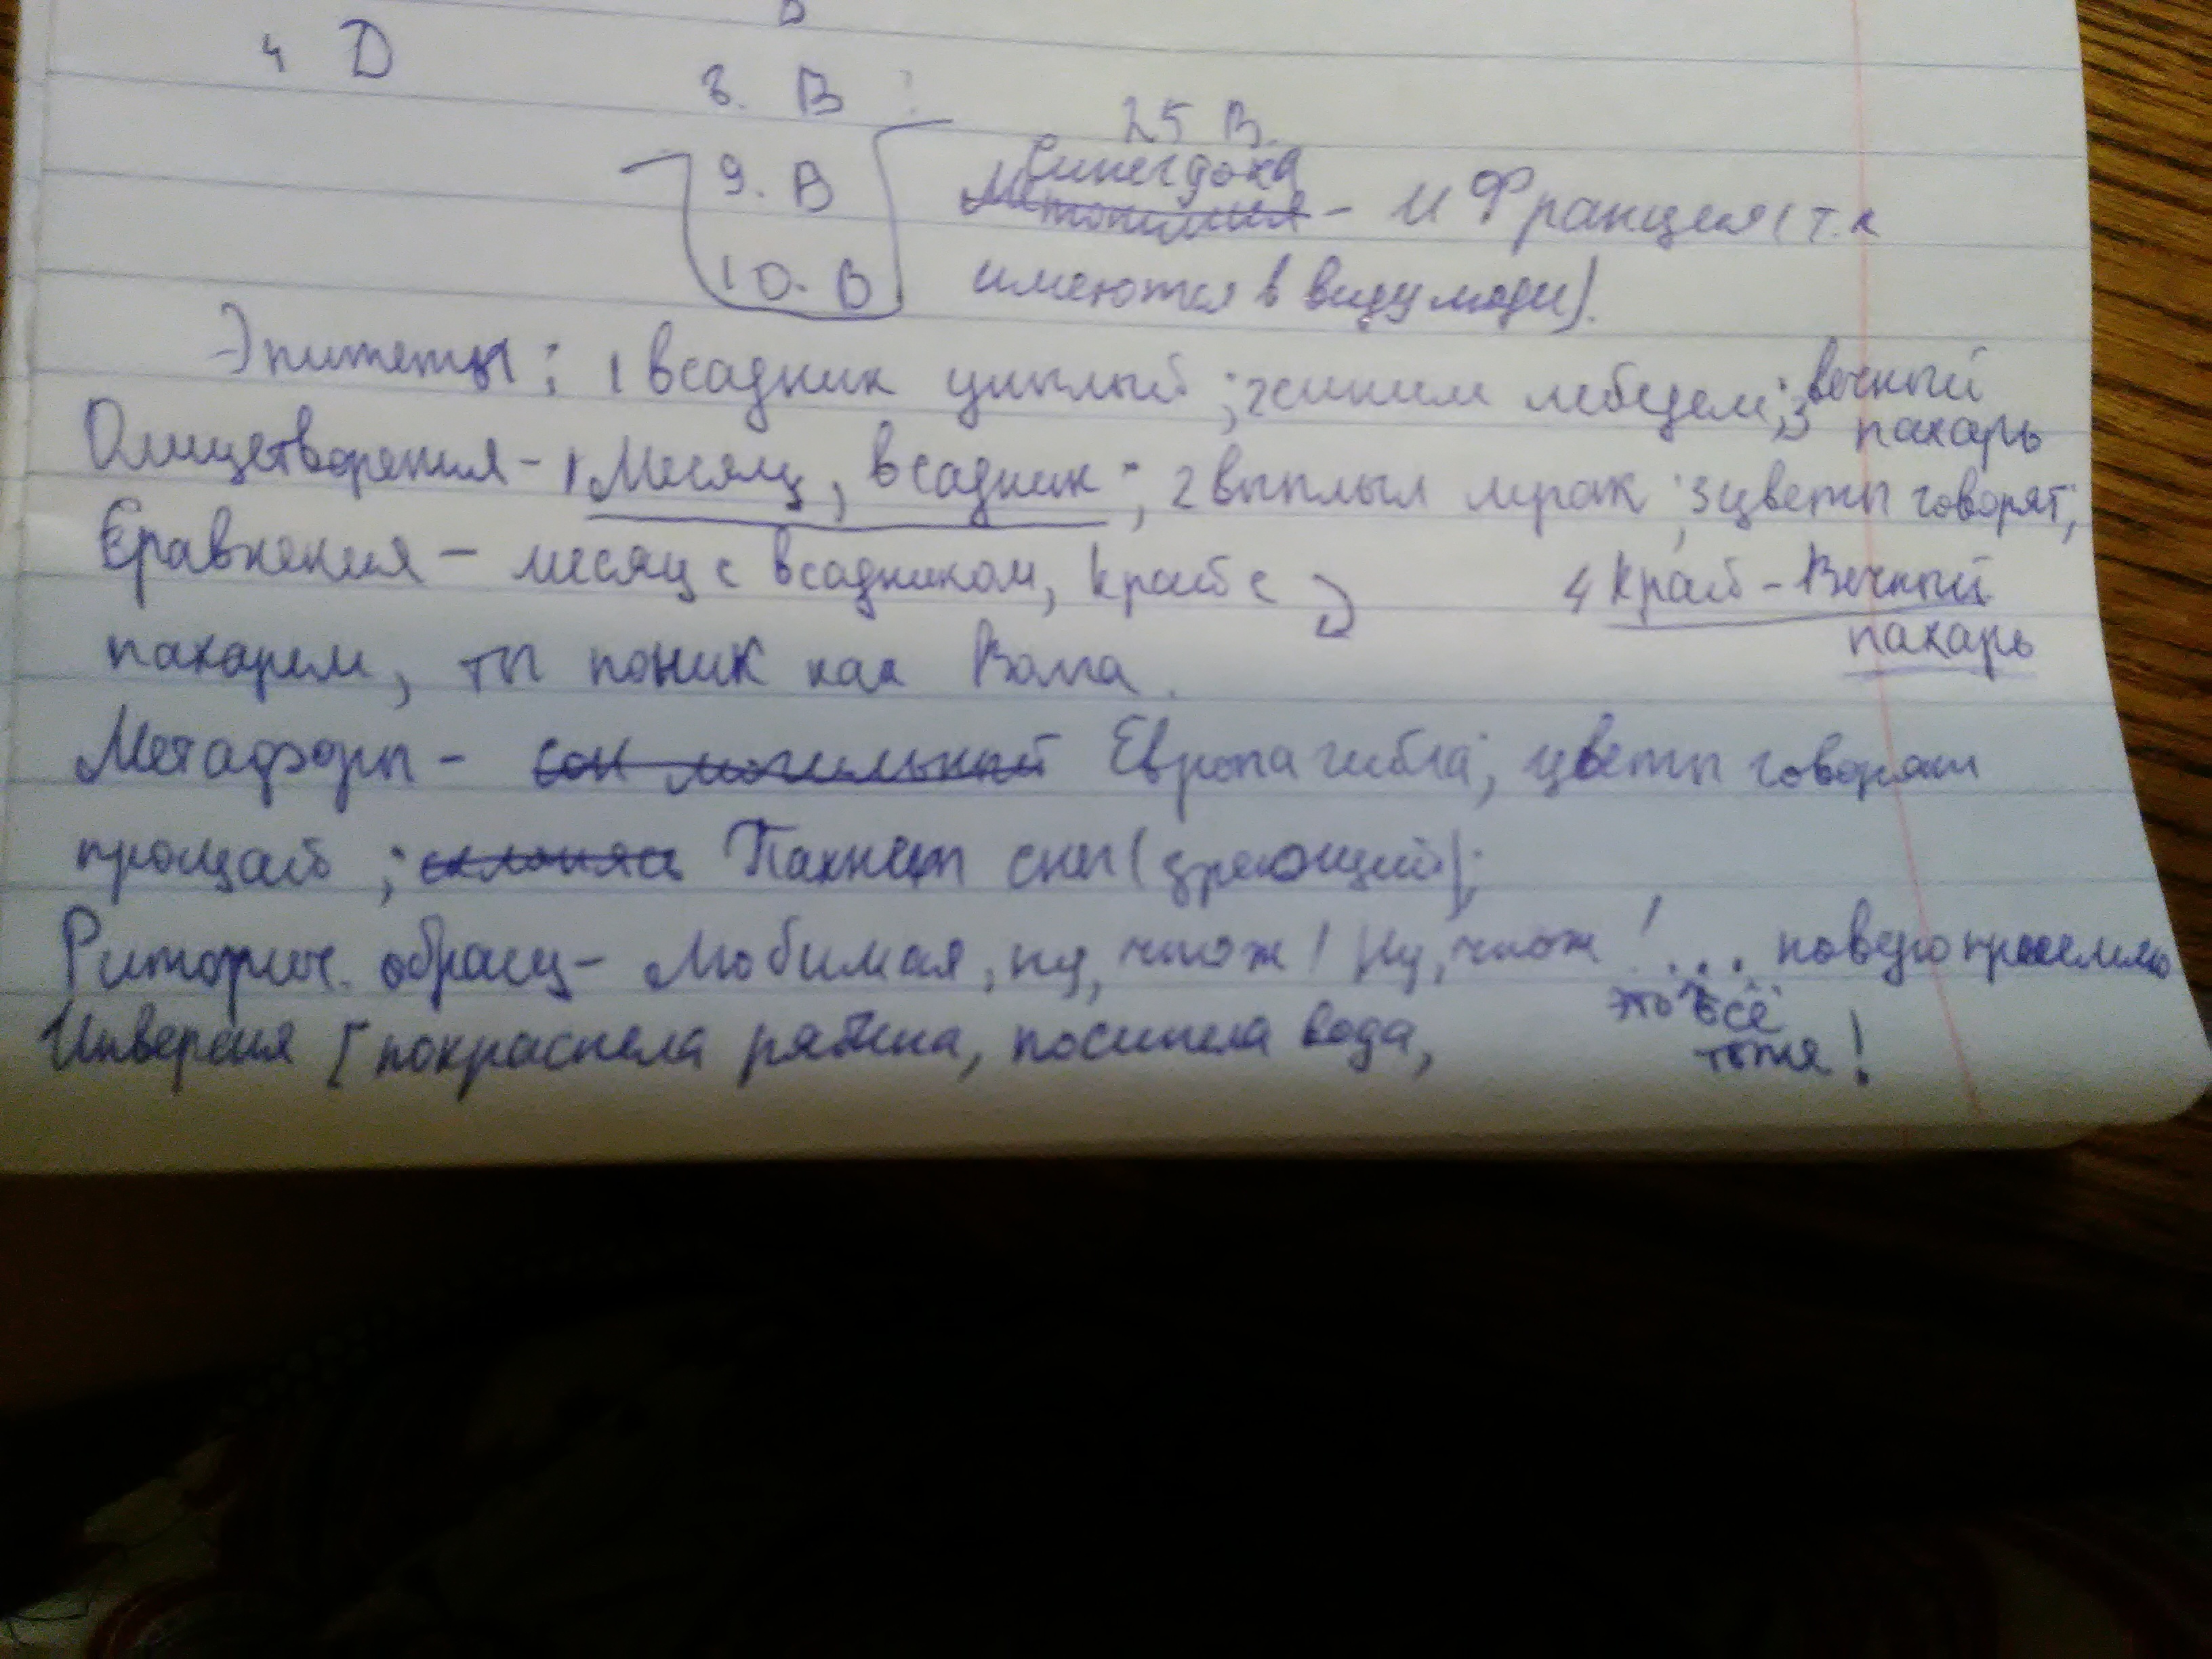 4 D
8. В
25 В.
9. В
Синегдоха
Метонимия - и Франция (т.к
10. В
имеются в виду люди).
Эпитеты: 1 всадник унылый; 2 синим лебедем; 3 вечный
пахарь
Олицетворения - 1 Месяц, всадник; 2 выплыл мрак; 3 цветы говорят;
Сравнения - месяц с всадником, краб с
4 Краб - Вечный
пахарь
пахарем, ты поник как Вата.
Метафоры - сон могильный Европа гибла; цветы говорят
прощай; склоняясь Пахнет снег (зреющий);
Риторич. обращ - Любимая, ну, чтож! Ну, чтож! ...
это всё
тотже!
Инверсия [покраснела рябина, посинела вода,